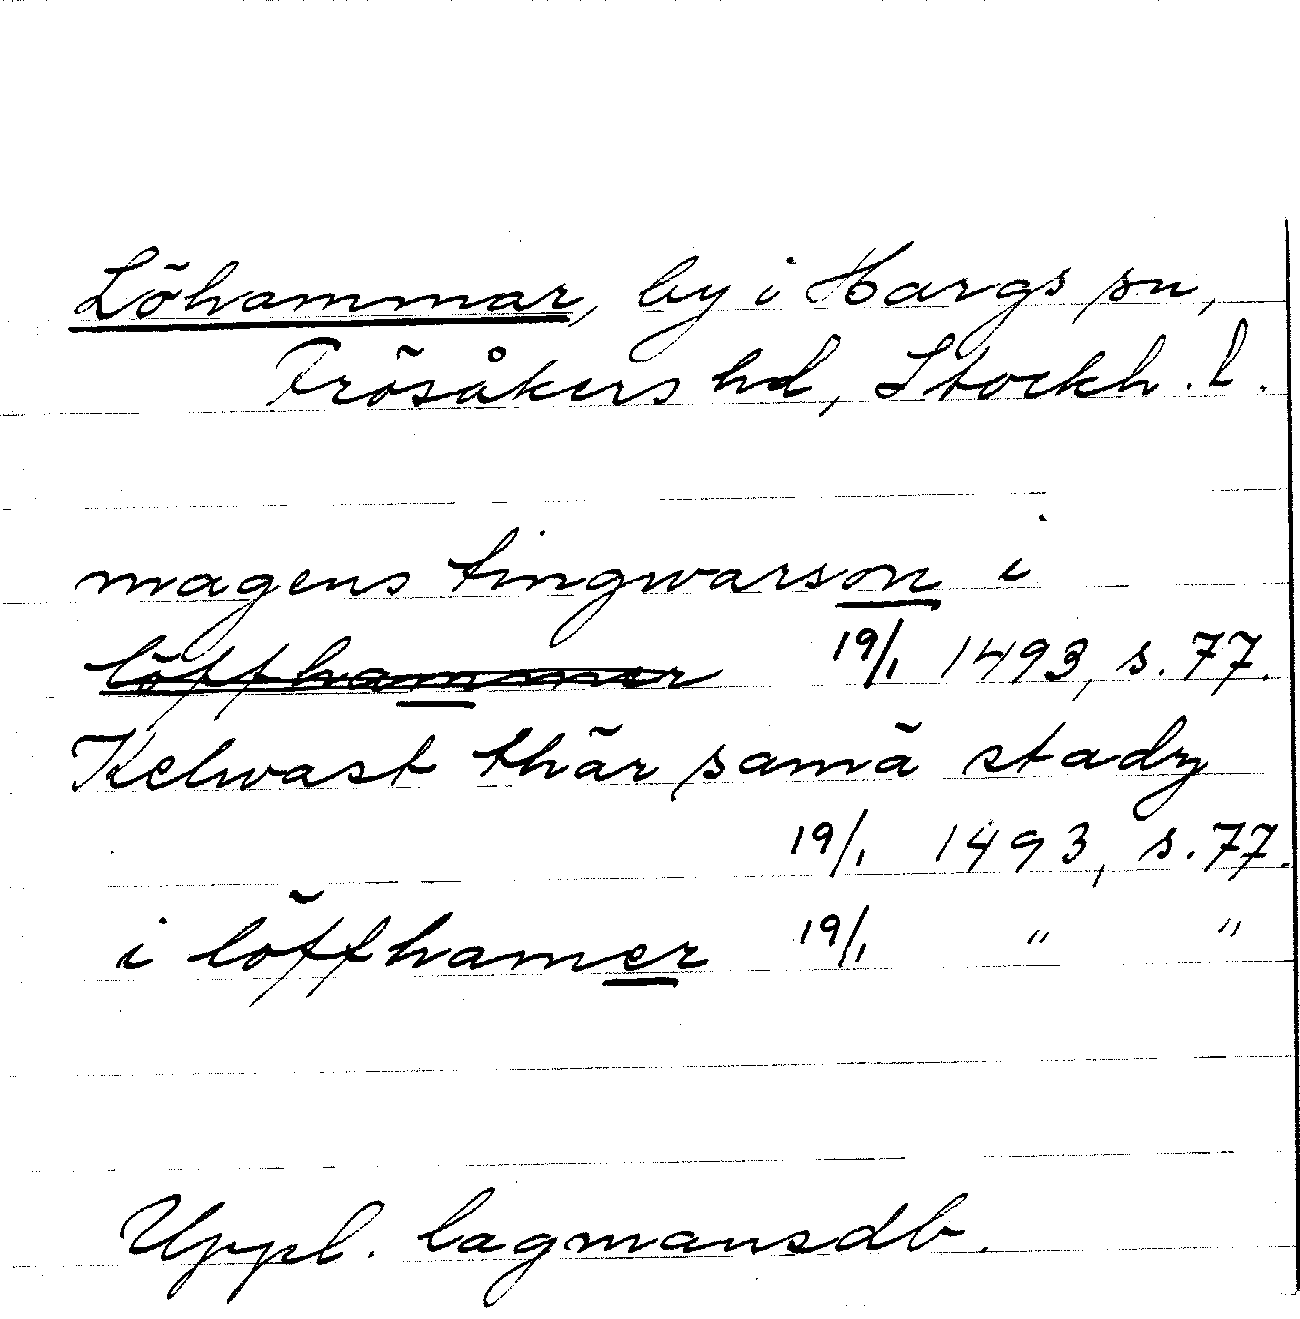 Löhammar, by i Hargs sn,
Frösåkers hd, Stockh. l.
magens tingwarson i
löffhammer 19/1 1493, s. 77.
Kelwast thär samä stady
19/1 1493, s. 77.
i löffhamer 19/1 " "
Uppl. lagmansdb.